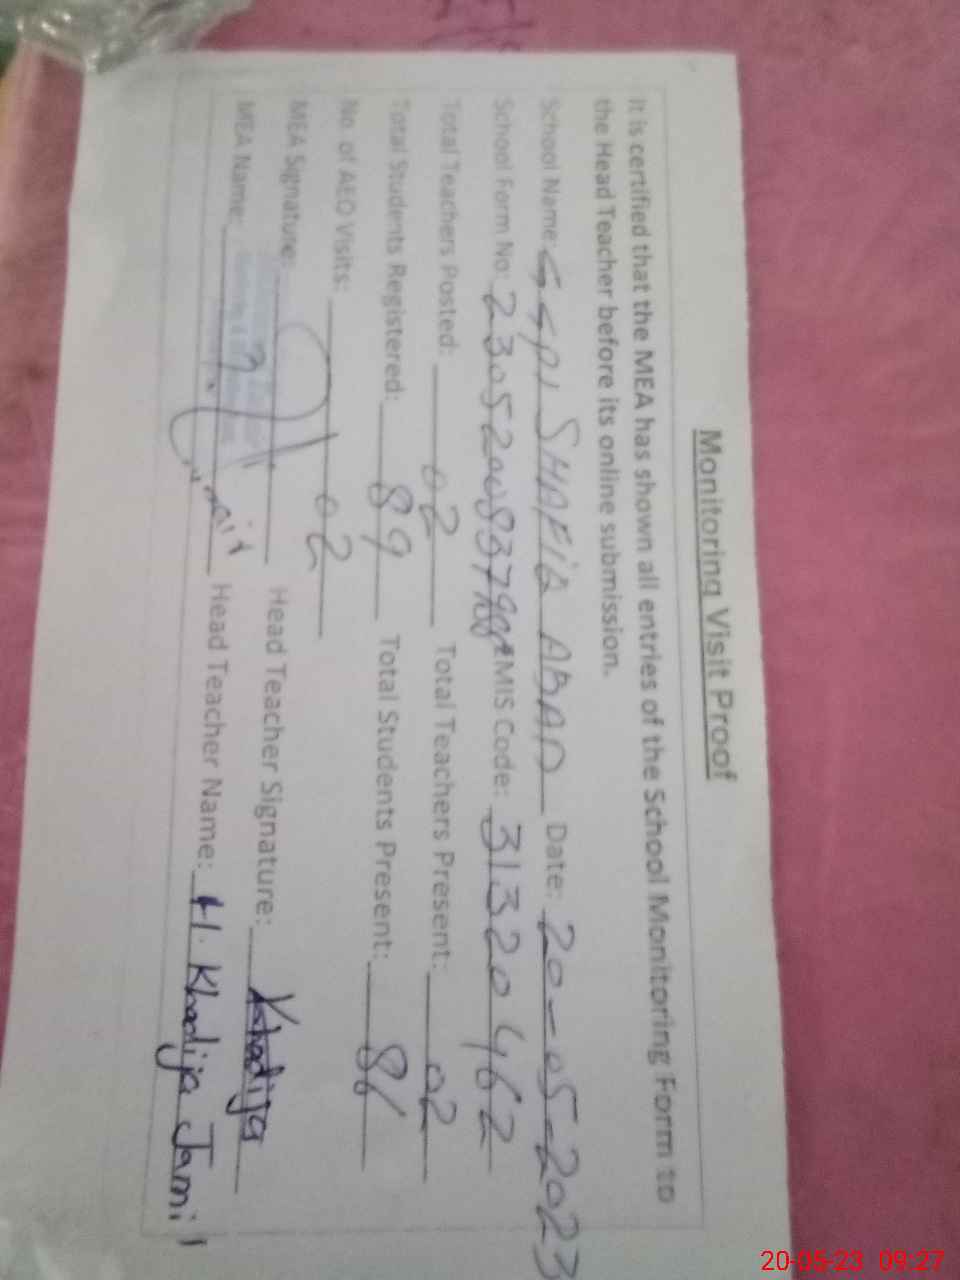 Monitoring Visit Proof
It is certified that the MEA has shown all entries of the School Monitoring Form to
the Head Teacher before its online submission.
School Name: SHAFIQ ABAD Date: 20-05-2023
School Form No: EMIS Code: 31320462
Total Teachers Posted: 02 Total Teachers Present: 02
Total Students Registered: 89 Total Students Present: 86
No. of AEO Visits: 02
MEA Signature: Head Teacher Signature: Khadija
MEA Name: Head Teacher Name: H. Khadija Jamil
20-05-23 09:27